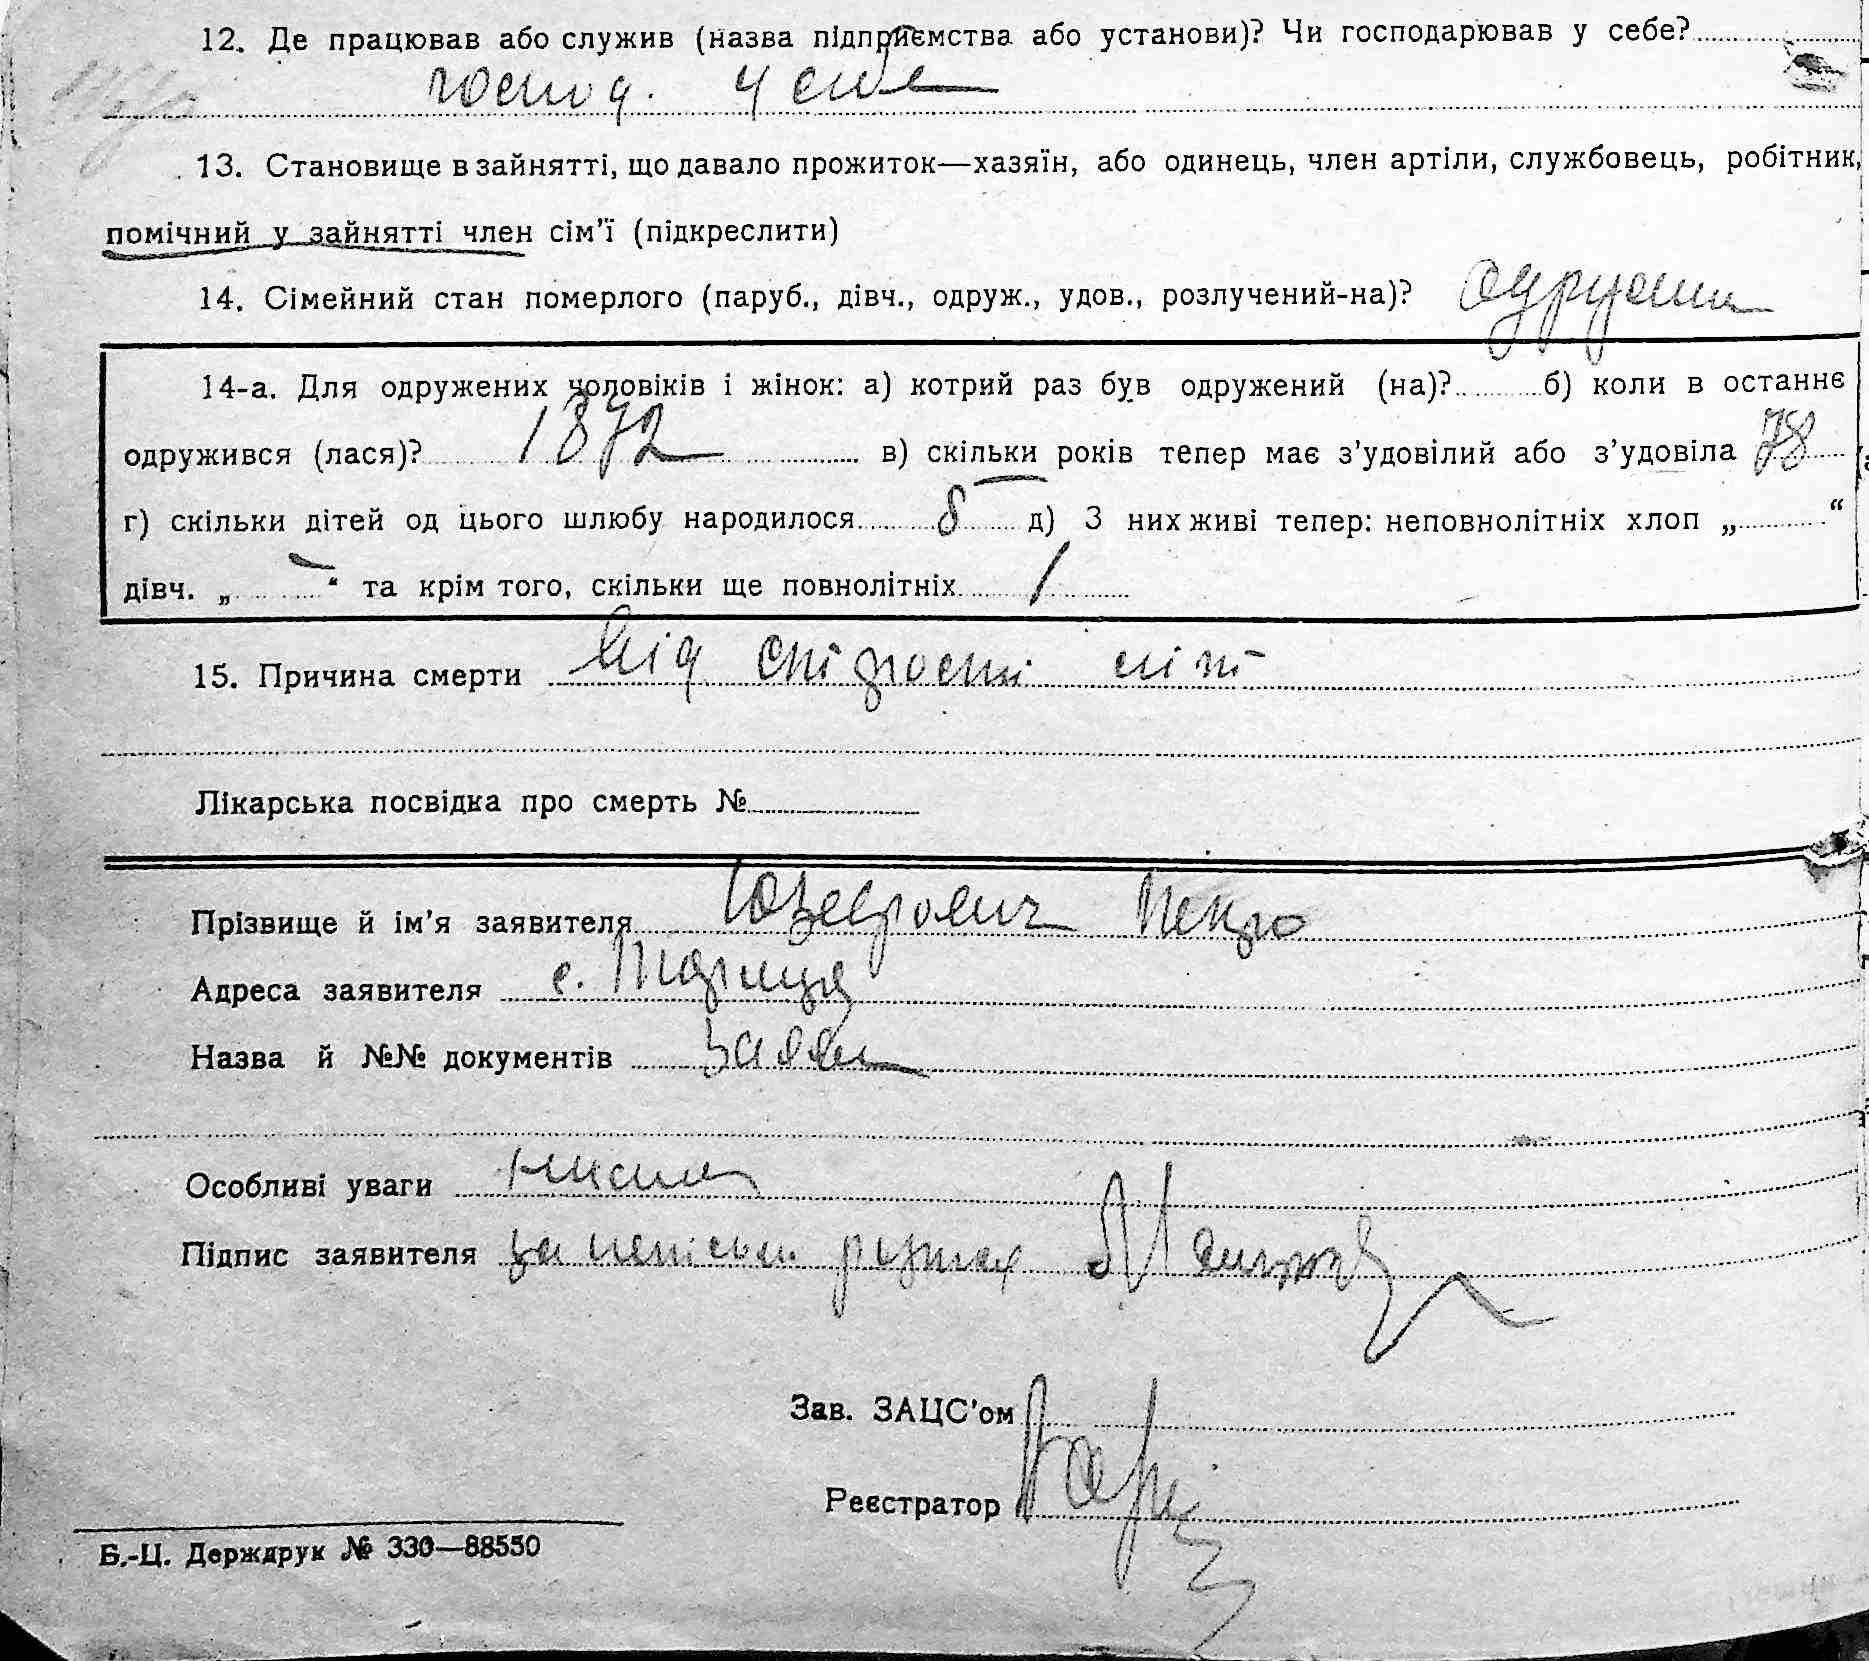 12. Де працював або служив (назва підприємства або установи)? Чи господарював у себе?
господ. у себе
13. Становище в зайнятті, що давало прожиток—хазяїн, або одинець, член артіли, службовець, робітник,
помічний у зайнятті член сім'ї (підкреслити)
14. Сімейний стан померлого (паруб., дівч., одруж., удов., розлучений-на)?
14-а. Для одружених чоловіків і жінок: а) котрий раз був одружений (на)? б) коли в останнє
одружився (лася)? 1872 в) скільки років тепер має з'удовілий або з'удовіла 78
г) скільки дітей од цього шлюбу народилося 8 д) З них живі тепер: неповнолітніх хлоп „ — “
дівч. „ — “ та крім того, скільки ще повнолітніх 1
15. Причина смерти від старости літ
Лікарська посвідка про смерть №
Прізвище й ім'я заявителя
Адреса заявителя с.
Назва й №№ документів заява
Особливі уваги
Підпис заявителя
Зав. ЗАЦС'ом
Реєстратор
Б.-Ц. Держдрук № 330—88550